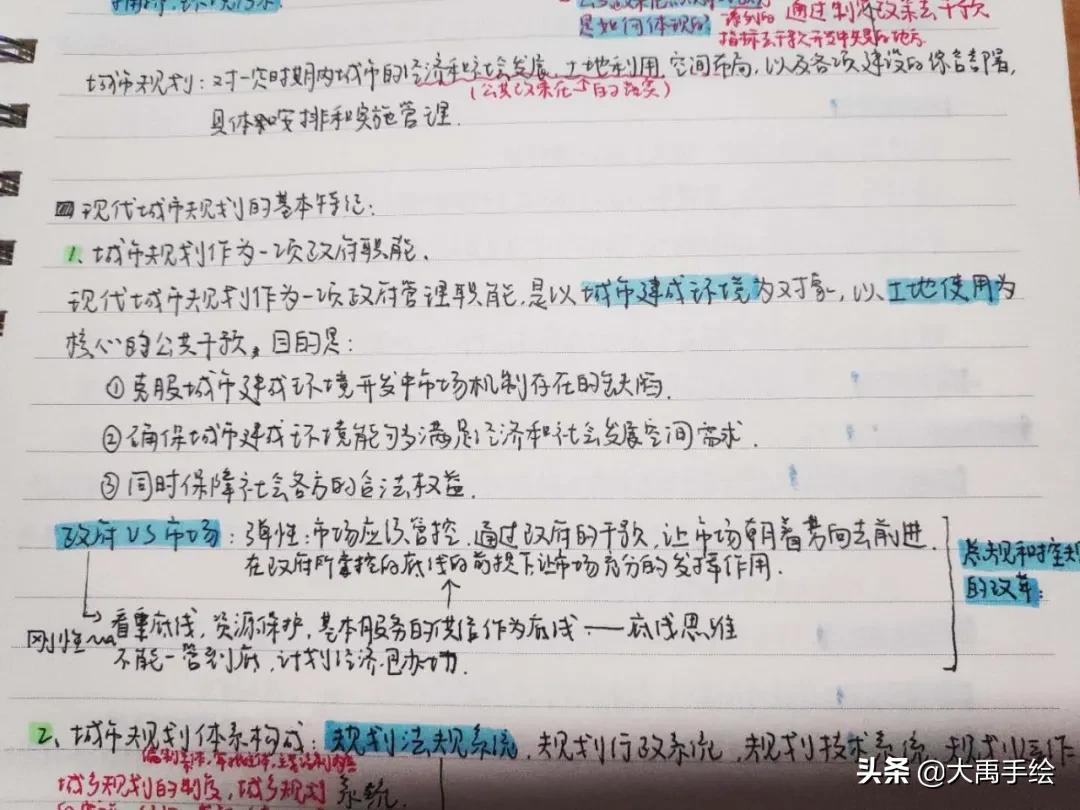 是如何体现的 通过制定政策去干预
指标去干预开发中失灵的地方
城市规划：对一定时期内城市的经济和社会发展、土地利用、空间布局，以及各项建设的综合部署，
（公共政策化的落实）
具体和安排和实施管理.
现代城市规划的基本特征：
1、城市规划作为一项政府职能.
现代城市规划作为一项政府管理职能，是以城市建成环境为对象，以土地使用为
核心的公共干预，目的是：
①克服城市建成环境开发中市场机制存在的缺陷.
②确保城市建成环境能够满足经济和社会发展空间需求.
③同时保障社会各方的合法权益.
政府VS市场：弹性：市场应该管控，通过政府的干预，让市场朝着方向去前进.
在政府所掌控的底线的前提下让市场充分的发挥作用.
总规和控规
的改革：
刚性 看重底线，资源保护，基本服务的供给作为底线——底线思维
不能一管到底，计划经济包办功.
2、城市规划体系构成：规划法规系统，规划行政系统，规划技术系统，规划工作
城乡规划的制度，城乡规划 系统.
头条 @大禹手绘